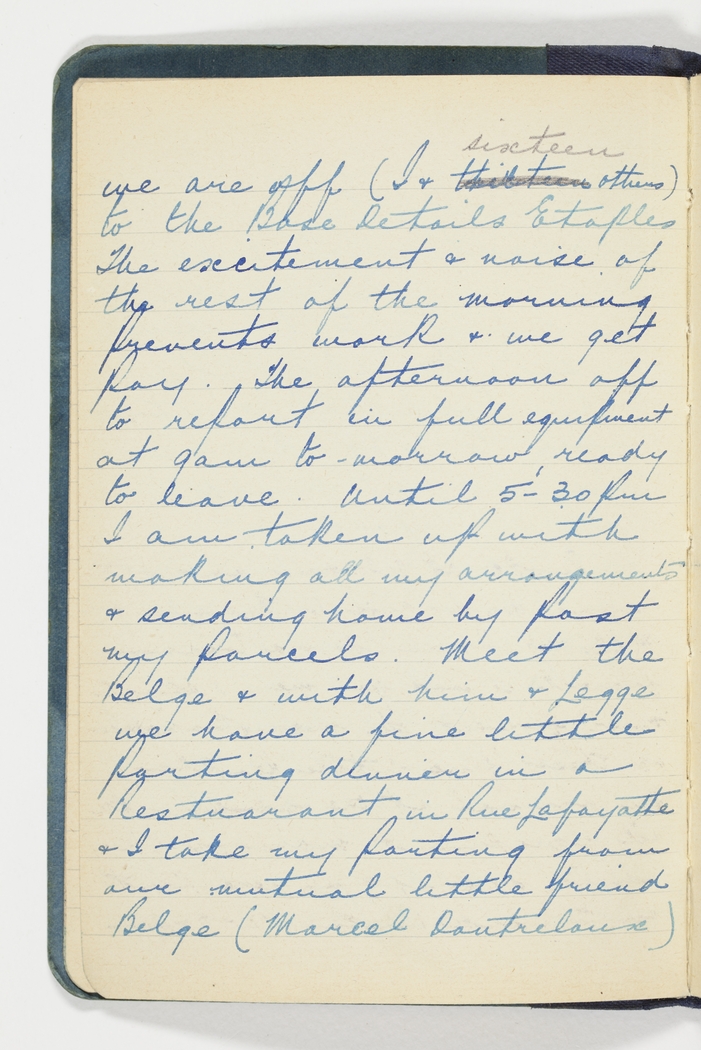 sixteen
we are off (I & thirteen others)
to the Base Details Etaples
The excitement & noise of
the rest of the morning
prevents work & we get
Pay. The afternoon off
to report in full equipment
at 9am to-morrow, ready
to leave. Until 5-30 Pm
I am taken up with
making all my arrangements
& sending home by Post
my Parcels. Meet the
Belge & with him & Legge
we have a fine little
Parting dinner in a
Restuarant in Rue Lafayatte
& I take my Parting from
our mutual little friend
Belge (Marcel Dautreloux)